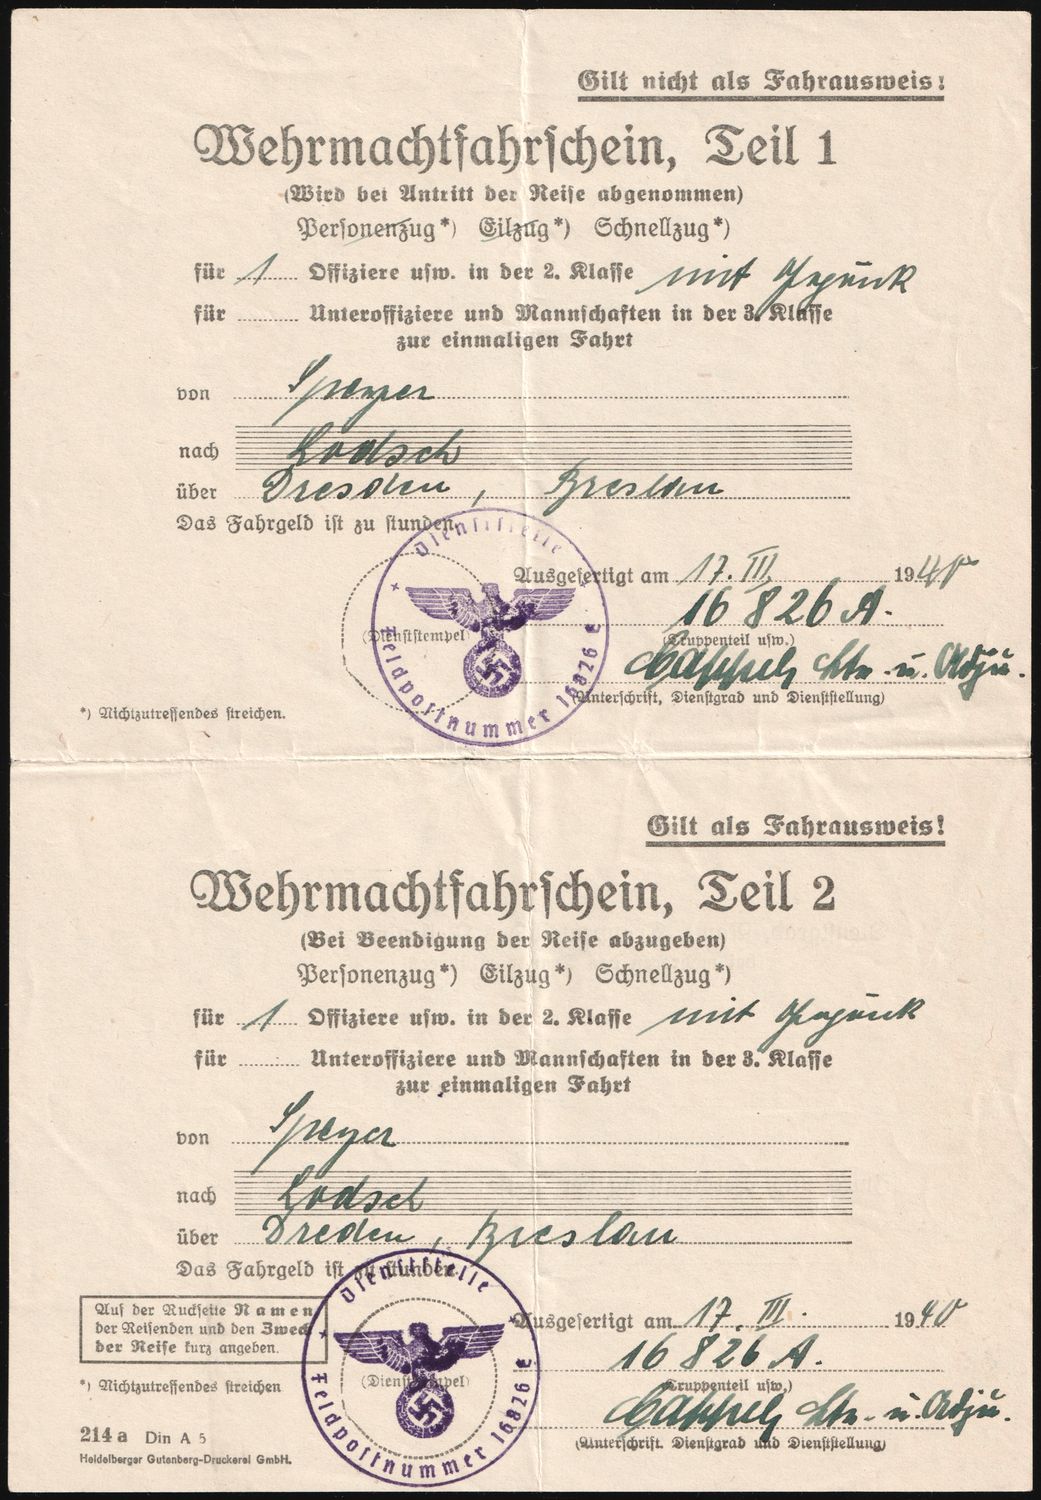 Gilt nicht als Fahrausweis!
Wehrmachtfahrschein, Teil 1
(Wird bei Antritt der Reise abgenommen)
Personenzug*) Eilzug*) Schnellzug*)
für 1 Offiziere usw. in der 2. Klasse mit Gepäck
für ........ Unteroffiziere und Mannschaften in der 3. Klasse
zur einmaligen Fahrt
von Speyer
nach Lodsch
über Dresden, Breslau
Das Fahrgeld ist zu stunden.
Dienststelle
Ausgefertigt am 17. III. 1940
16826 A.
(Dienststempel)
(Truppenteil usw.)
Ltn. u. Adju.
(Unterschrift, Dienstgrad und Dienststellung)
Feldpostnummer 16826 E
*) Nichtzutreffendes streichen.
Gilt als Fahrausweis!
Wehrmachtfahrschein, Teil 2
(Bei Beendigung der Reise abzugeben)
Personenzug*) Eilzug*) Schnellzug*)
für 1 Offiziere usw. in der 2. Klasse mit Gepäck
für ........ Unteroffiziere und Mannschaften in der 3. Klasse
zur einmaligen Fahrt
von Speyer
nach Lodsch
über Dreden, Breslau
Das Fahrgeld ist zu stunden.
Dienststelle
Auf der Rückseite Namen
der Reisenden und den Zweck
der Reise kurz angeben.
Ausgefertigt am 17. III. 1940
16826 A.
(Dienststempel)
(Truppenteil usw.)
*) Nichtzutreffendes streichen
Ltn. u. Adju.
(Unterschrift. Dienstgrad und Dienststellung)
Feldpostnummer 16826 E
214 a Din A 5
Heidelberger Gutenberg-Druckerei GmbH.